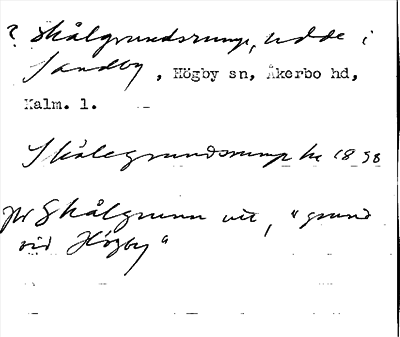 ? Skålgrundsrump, udde i
Sandby, Högby sn, Åkerbo hd,
Kalm. l.
Skålegrundsrump hu 1898
jfr Skålgrunn utt, "grund
vid Högby"